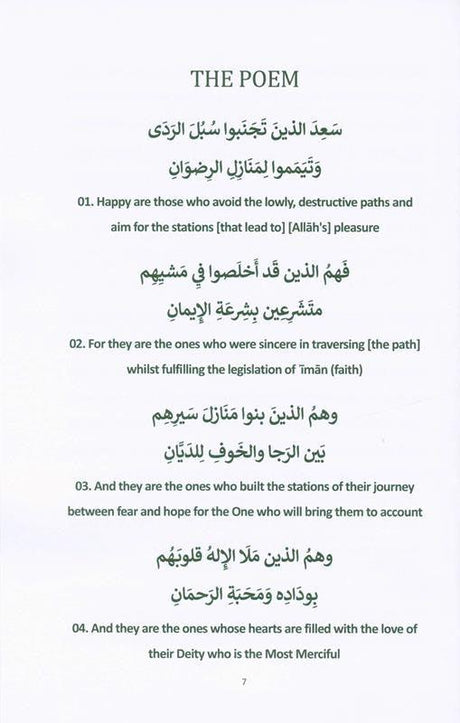 THE POEM
سَعِدَ الذينَ تَجَنَبوا سُبُلَ الرَدَى
وَتَيَمَموا لِمَنَازِلِ الرِضوَانِ
01. Happy are those who avoid the lowly, destructive paths and
aim for the stations [that lead to] [Allāh's] pleasure
فَهمُ الذين قَد أَخلَصوا فيِ مَشيِهِم
متَشَرِعِين بِشِرعَةِ الإِيمانِ
02. For they are the ones who were sincere in traversing [the path]
whilst fulfilling the legislation of ʿīmān (faith)
وهمُ الذينَ بنوا مَنَازلَ سَيرِهِم
بَين الرَجا والخَوفِ لِلدَيَّانِ
03. And they are the ones who built the stations of their journey
between fear and hope for the One who will bring them to account
وهمُ الذين مَلَا الإِلهُ قلوبَهُم
بِودَادِه وَمَحَبَةِ الرَحمَانِ
04. And they are the ones whose hearts are filled with the love of
their Deity who is the Most Merciful
7